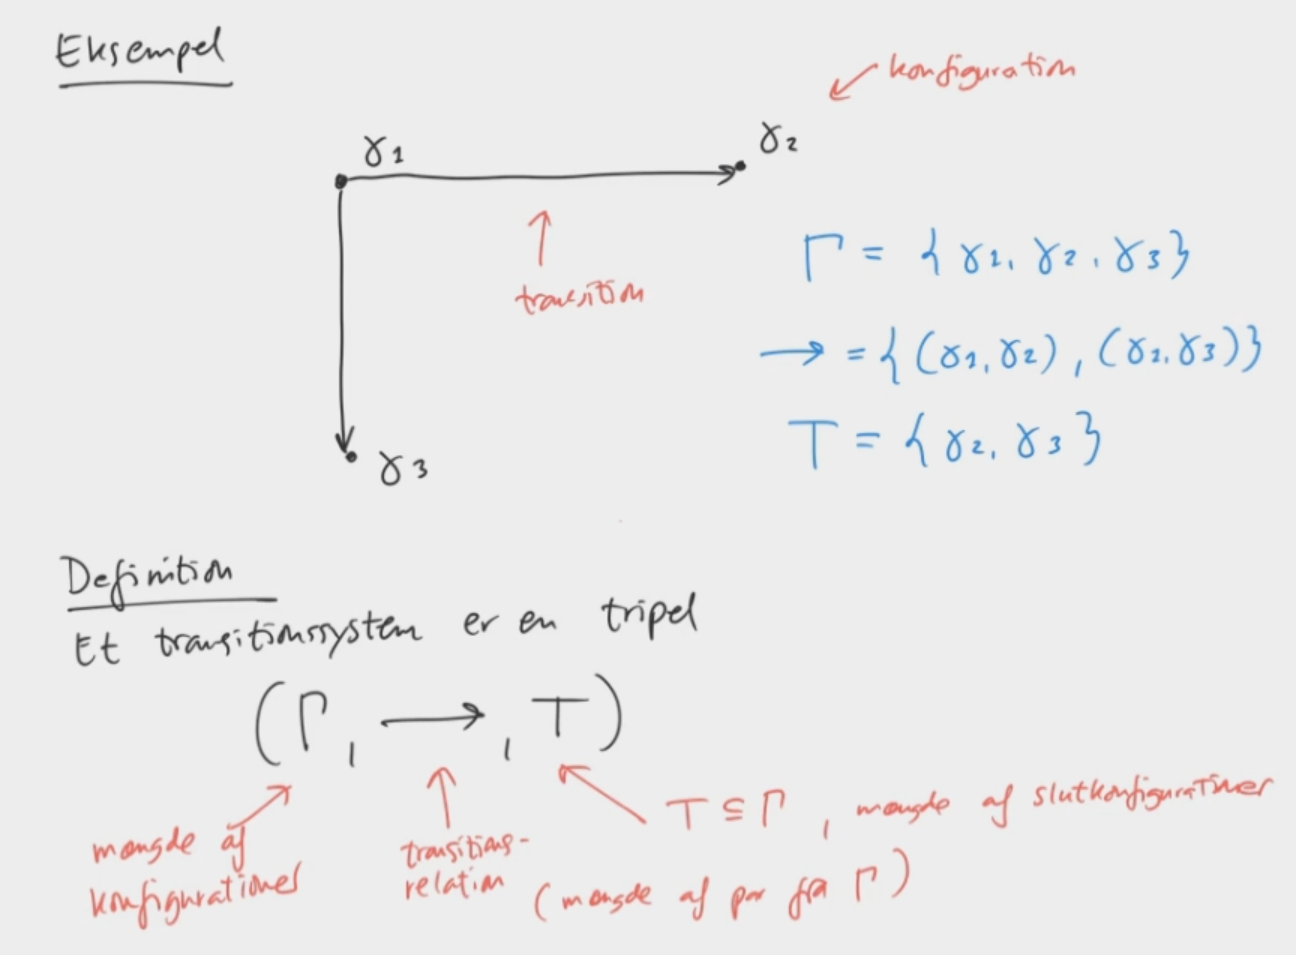 Eksempel
konfiguration
γ1
γ2
transition
γ3
Γ = { γ1, γ2, γ3 }
→ = { (γ1, γ2), (γ1, γ3) }
T = { γ2, γ3 }
Definition
Et transitionssystem er en tripel
(Γ, →, T)
mængde af
konfigurationer
transitions-
relation
(mængde af par fra Γ)
T ⊆ Γ, mængde af slutkonfigurationer